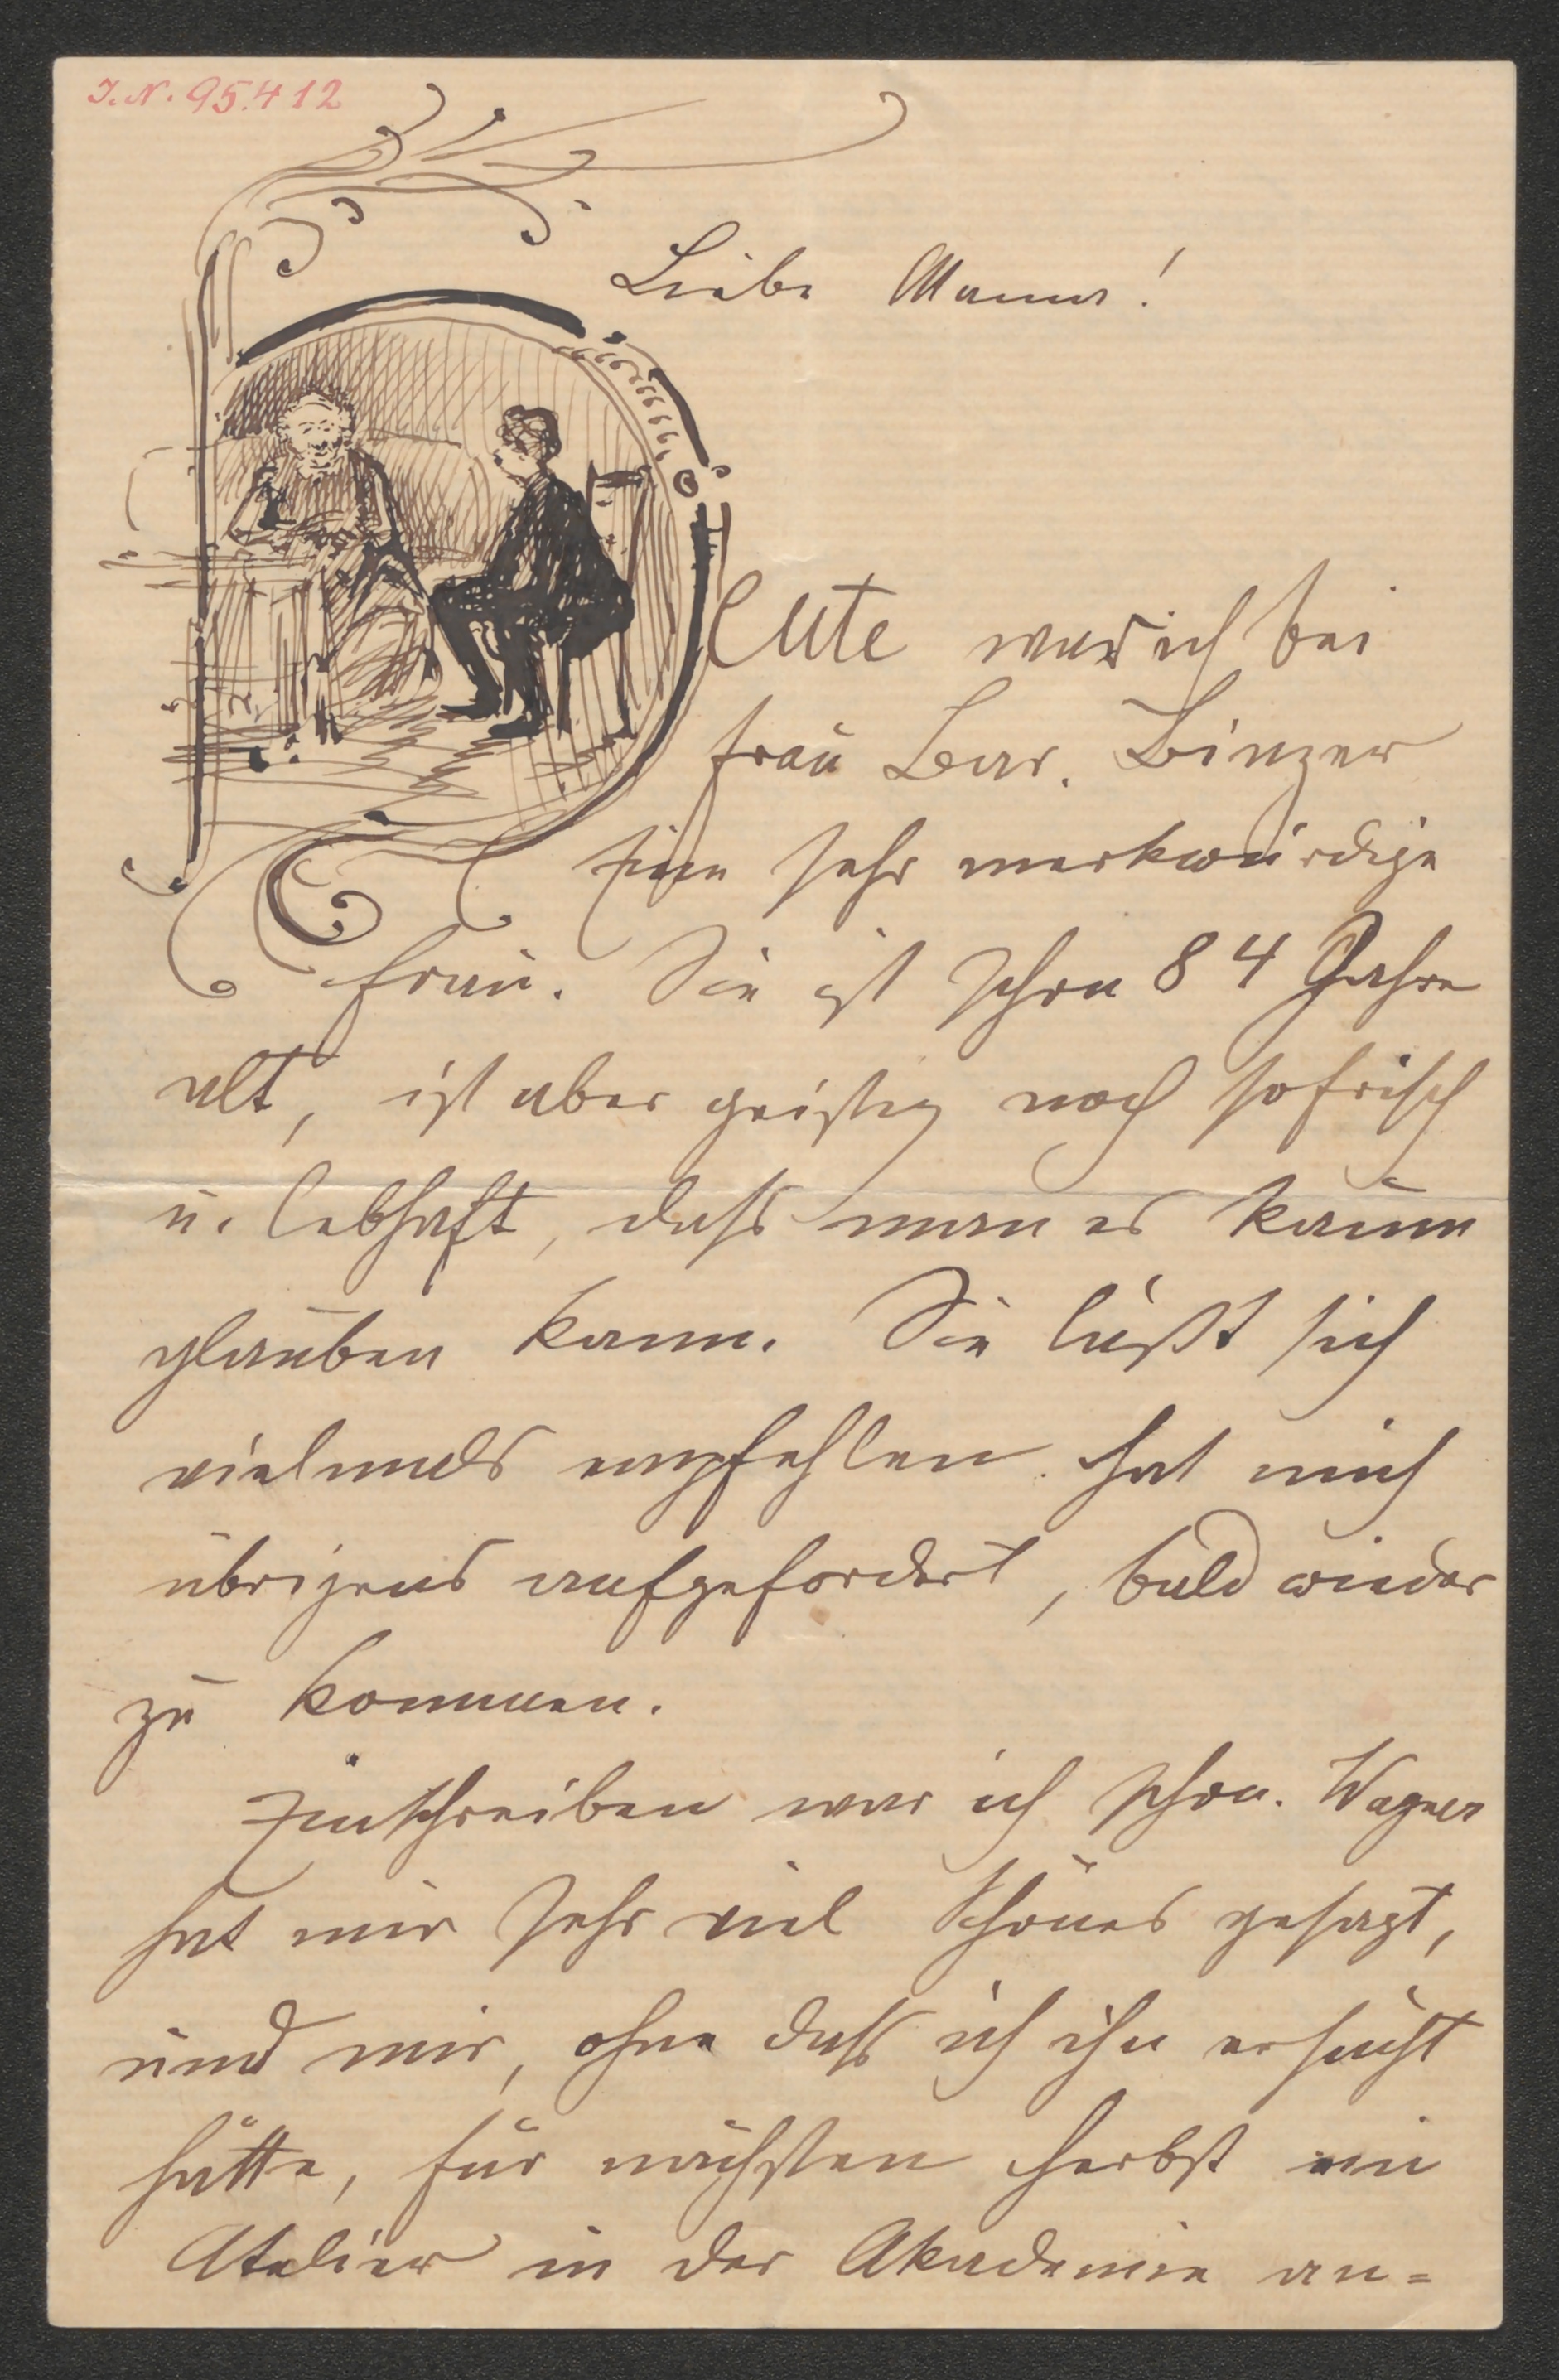 J.N. 95.412
Liebe Mama!
Heute war ich bei
Frau Bar. Binzer
Eine sehr merkwürdige
Frau. Sie ist schon 84 Jahre
alt, ist aber geistig noch so frisch
u. lebhaft, dass man es kaum
glauben kann. Sie läßt sich
vielmals empfehlen hat mich
übrigens aufgefordert, bald wieder
zu kommen.
Einschreiben war ich schon. Wagner
hat mir sehr viel Schönes gesagt,
und mir, ohne dass ich ihn ersucht
hätte, für nächsten Herbst ein
Atelier in der Akademie an=